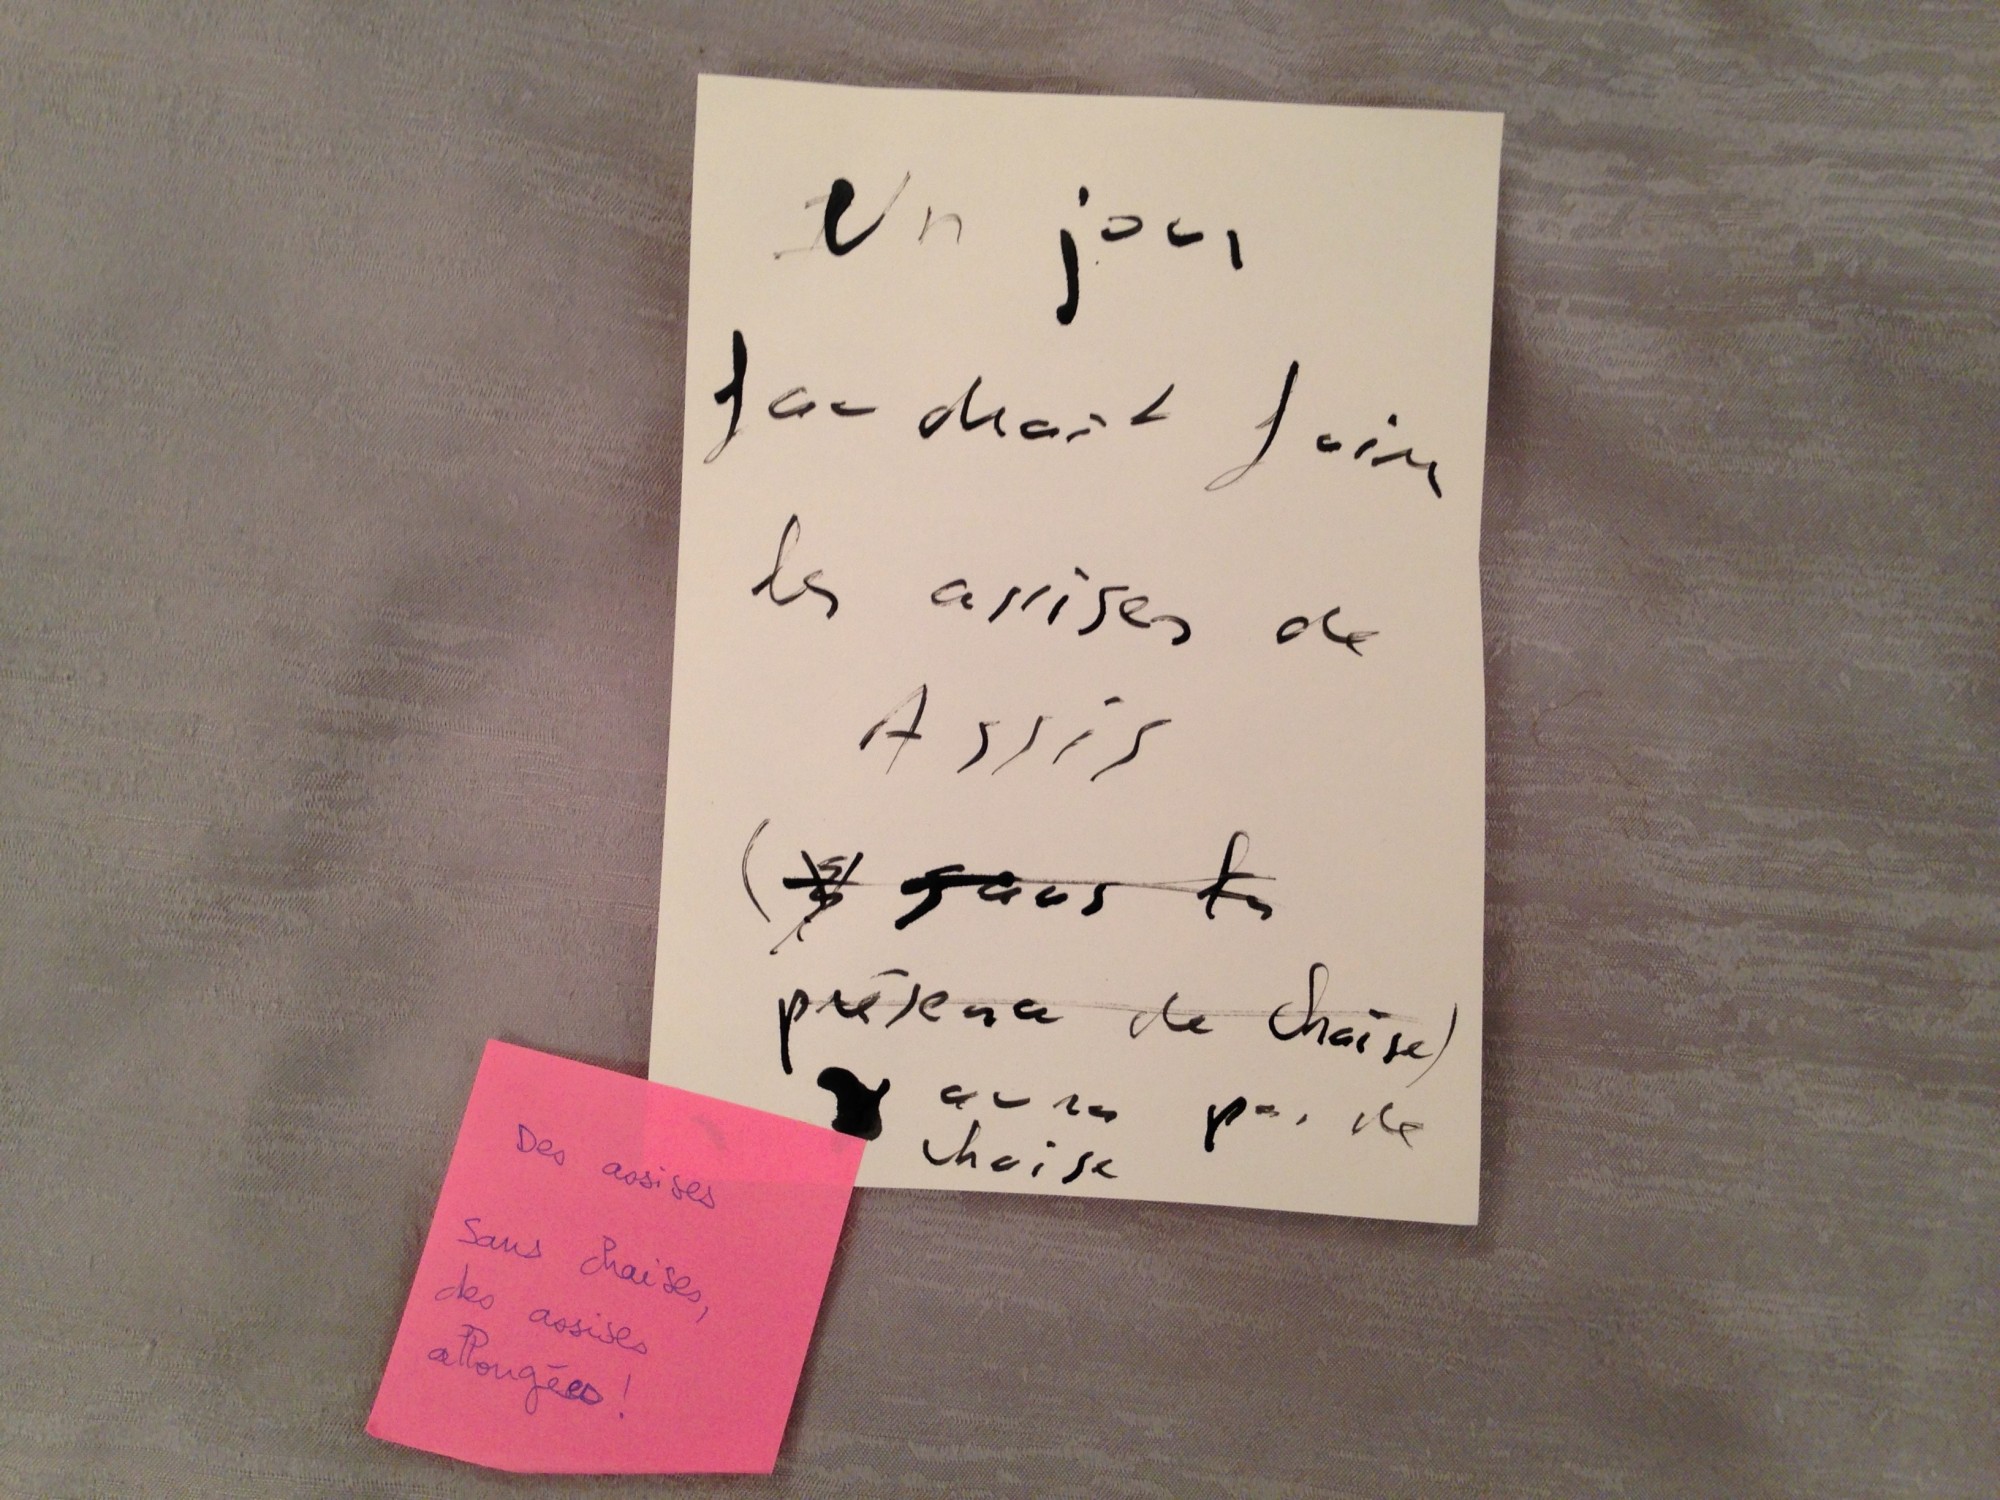 Un jour
faudrait faire
les assises de
Assis
sans la
présence de chaise)
avec pas de
chaise
Des assises
Sans chaises,
des assises
allongées !